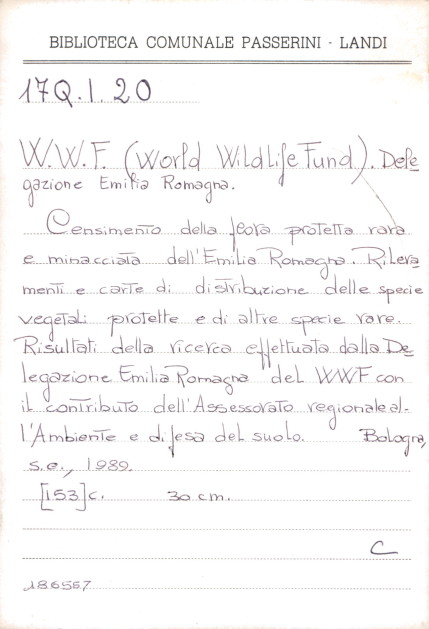 BIBLIOTECA COMUNALE PASSERINI - LANDI
17Q.I.20
W.W.F. (World WildLife Fund). Dele
gazione Emilia Romagna.
Censimento della flora protetta rara
e minacciata dell'Emilia Romagna. Rileva
menti e carte di distribuzione delle specie
vegetali protette e di altre specie rare.
Risultati della ricerca effettuata dalla De
legazione Emilia Romagna del WWF con
il contributo dell'Assessorato regionale al-
l'Ambiente e difesa del suolo. Bologna,
s.e., 1989.
[153]c. 30 cm.
C
186557